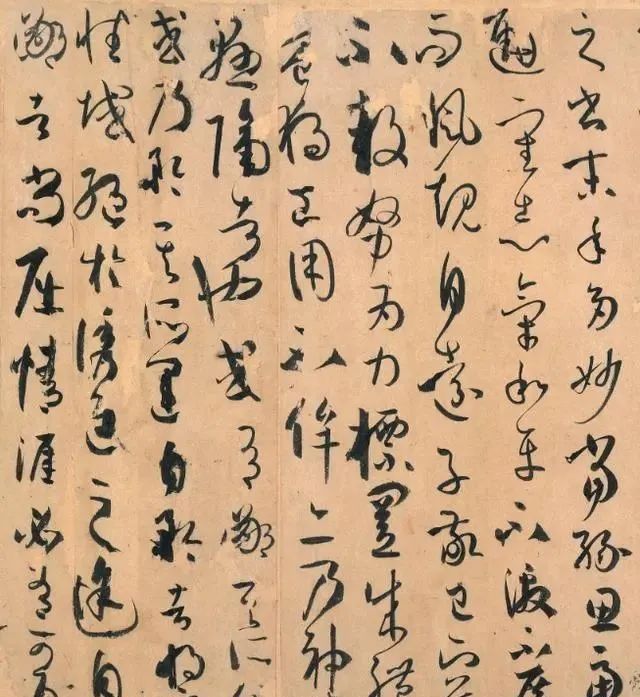 之書末年多妙當緣思慮
通審志氣和平不激不厲
而風規自遠子敬已下
不鼓努為力標置成體
豈獨工用不侔亦乃神
懸隔者也或有鄙其所
或乃矜其所運自矜者將
性域絕於誘進之途自
鄙者尚屈情涯必有可